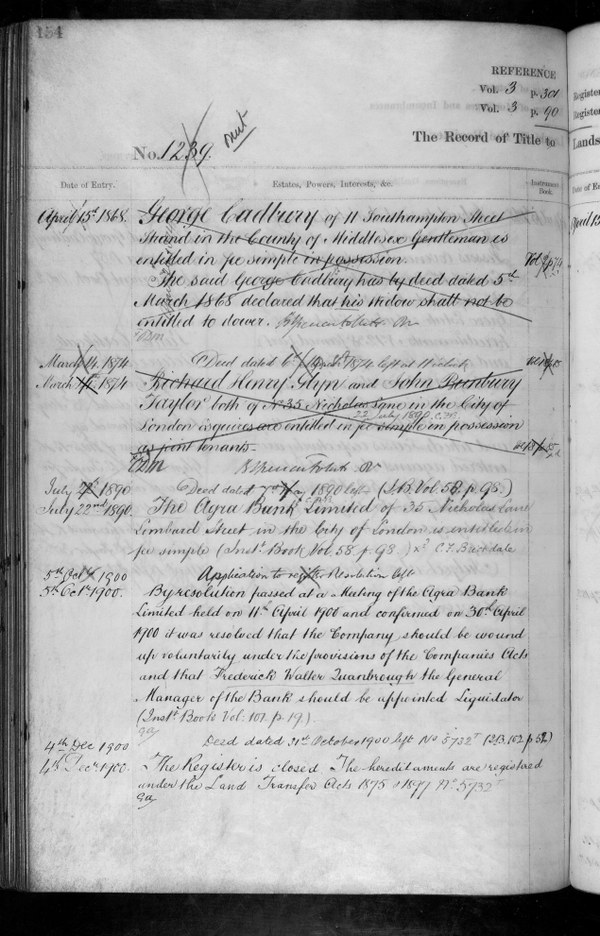 154
REFERENCE
Vol. 3 p. 301
Vol. 3 p. 90
The Record of Title to
No. 1239.
Date of Entry.
Estates, Powers, Interests, &c.
Instrument Book.
April 15th 1868.
George Cadbury of 11 Southampton Street
Strand in the County of Middlesex Gentleman is
entitled in fee simple in possession.
The said George Cadbury has by deed dated 5th
March 1868 declared that his widow shall not be
entitled to dower.
March 14. 1874
Deed dated 1874 left at
March 1874
Richard Henry Glyn and John Bunbury
Taylor both of No. 35 Nicholas Lane in the City of
22 July 1890
London Esquires are entitled in fee simple in possession
as joint tenants.
July 1890
Deed dated 1890 left (I.B. Vol. 58. p. 98.)
July 22nd 1890.
The Agra Bank Limited of 35 Nicholas Lane
Lombard Street in the City of London is entitled in
fee simple (Inst. Book Vol. 58 p. 98.)
5th Oct 1900
Application to register Resolution left
5th Octr. 1900.
By resolution passed at a Meeting of the Agra Bank
Limited held on 11th April 1900 and confirmed on 30th April
1900 it was resolved that the Company should be wound
up voluntarily under the provisions of the Companies Acts
and that Frederick Walter the General
Manager of the Bank should be appointed Liquidator
(Inst. Book Vol: 101. p. 19.)
4th Dec 1900
Deed dated 31st October 1900 left No 5732 (I.B. 102 p. 52.)
4th Decr. 1900.
The Register is closed The hereditaments are registered
under the Land Transfer Acts 1875 & 1897 No. 5732
Register
Register
Lands
Date of E
April 15